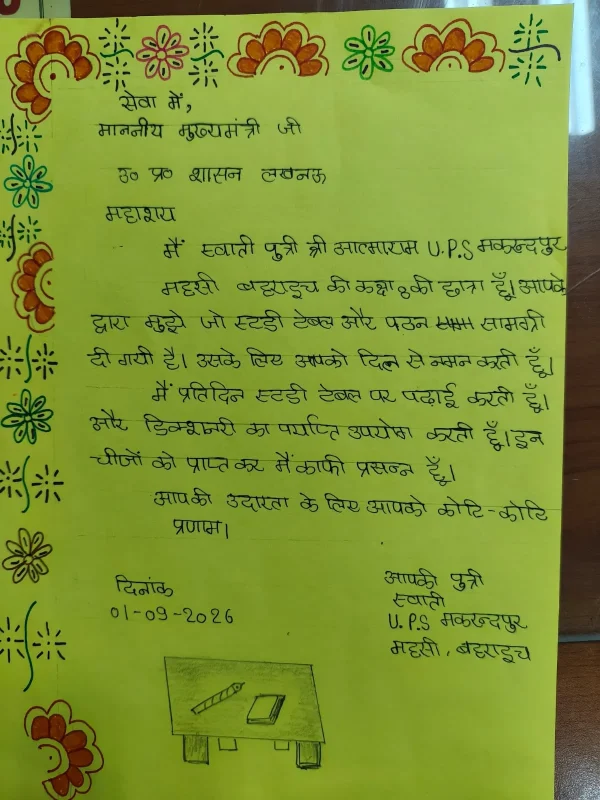 सेवा में,
माननीय मुख्यमंत्री जी
उ० प्र० शासन लखनऊ
महाशय
मैं स्वाती पुत्री श्री आत्माराम U.P.S मकरन्दपुर
महसी बहराइच की कक्षा 8 की छात्रा हूँ। आपके
द्वारा मुझे जो स्टडी टेबल और पठन सामग्री
दी गयी है। उसके लिए आपको दिल से नमन करती हूँ।
मैं प्रतिदिन स्टडी टेबल पर पढ़ाई करती हूँ।
और डिक्शनरी का पर्याप्त उपयोग करती हूँ। इन
चीजों को प्राप्त कर मैं काफी प्रसन्न हूँ।
आपकी उदारता के लिए आपको कोटि-कोटि
प्रणाम।
दिनांक
01-09-2026
आपकी पुत्री
स्वाती
U.P.S मकरन्दपुर
महसी, बहराइच